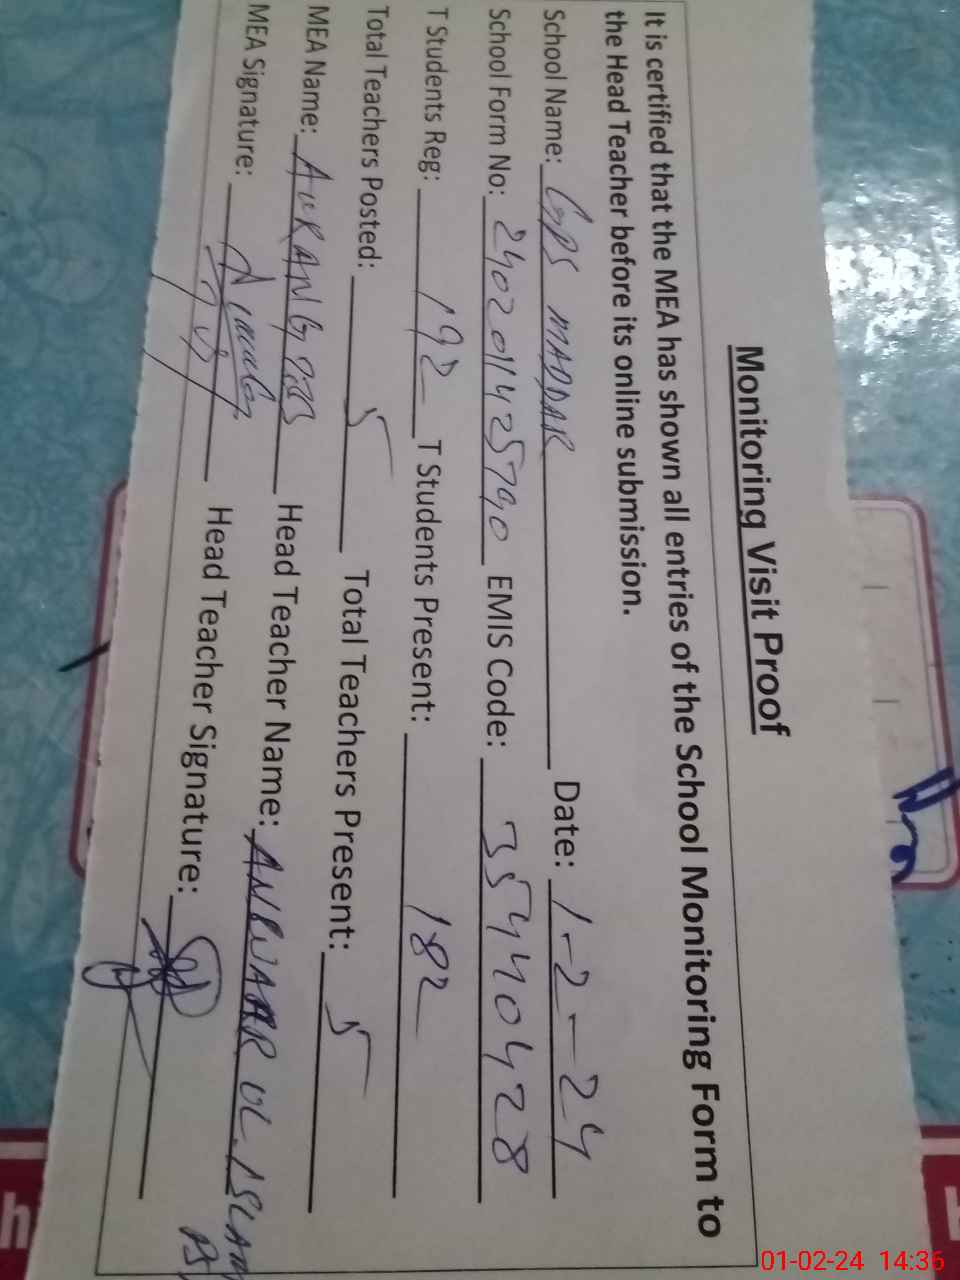 Monitoring Visit Proof
It is certified that the MEA has shown all entries of the School Monitoring Form to
the Head Teacher before its online submission.
School Name: GPS MADDAR Date: 1-2-24
School Form No: 2402011425790 EMIS Code: 35440428
T Students Reg: 192 T Students Present: 182
Total Teachers Posted: 5 Total Teachers Present: 5
MEA Name: AURANGZEB Head Teacher Name: ANWAAR UL ISLAM
MEA Signature: Head Teacher Signature:
01-02-24 14:36